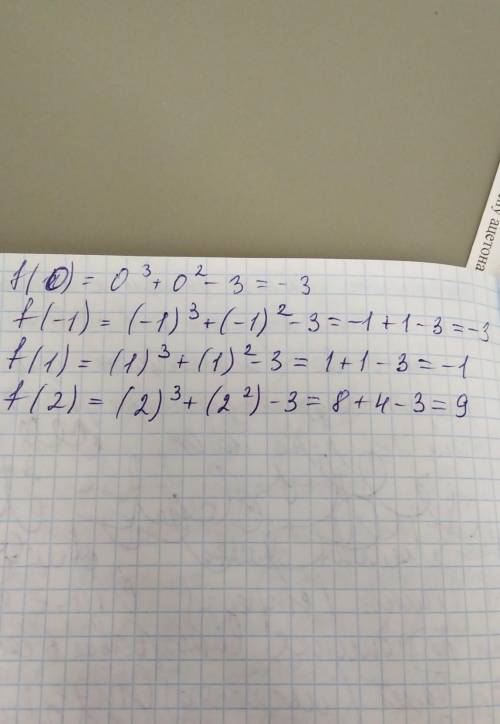 ну ацетона
f(0) = 0³ + 0² - 3 = - 3
f(-1) = (-1)³ + (-1)² - 3 = -1 + 1 - 3 = -3
f(1) = (1)³ + (1)² - 3 = 1 + 1 - 3 = -1
f(2) = (2)³ + (2²) - 3 = 8 + 4 - 3 = 9